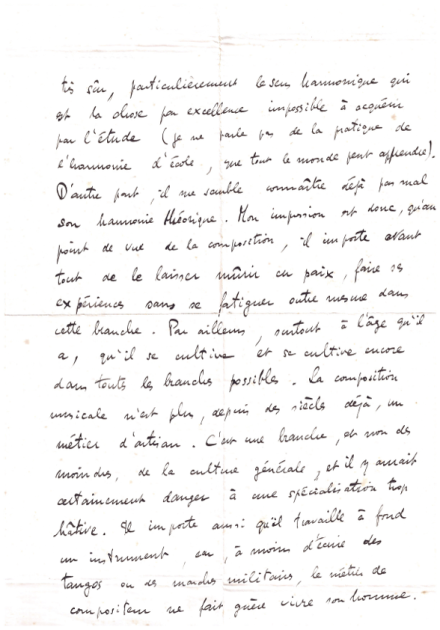 très sûr, particulièrement le sens harmonique qui
est la chose par excellence impossible à acquérir
par l'étude (je ne parle pas de la pratique de
l'harmonie d'école, que tout le monde peut apprendre).
D'autre part, il me semble connaître déjà pas mal
son harmonie théorique. Mon impression est donc, qu'au
point de vue de la composition, il importe avant
tout de le laisser mûrir en paix, faire ses
expériences sans se fatiguer outre mesure dans
cette branche. Par ailleurs, surtout à l'âge qu'il
a, qu'il se cultive et se cultive encore
dans toutes les branches possibles. La composition
musicale n'est plus, depuis des siècles déjà, un
métier d'artisan. C'est une branche, et non des
moindres, de la culture générale, et il y aurait
certainement danger à une spécialisation trop
hâtive. Il importe aussi qu'il travaille à fond
un instrument, car, à moins d'écrire des
tangos ou des marches militaires, le métier de
compositeur ne fait guère vivre son homme.